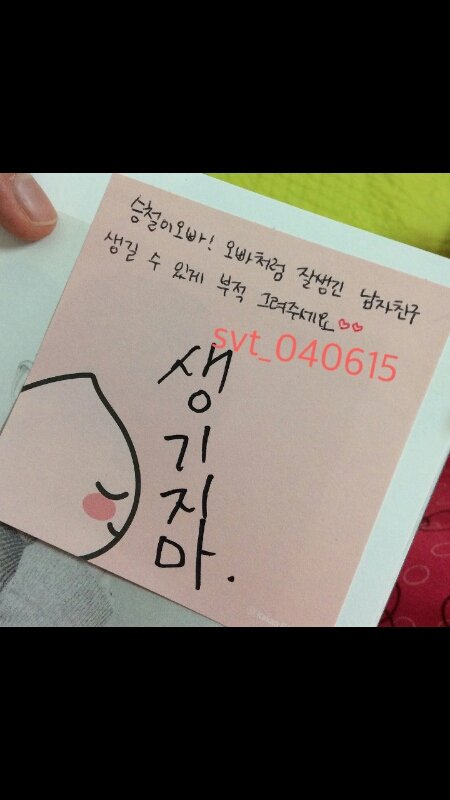 승철이오빠! 오빠처럼 잘생긴 남자친구
생길 수 있게 부적 그려주세요♡♡
svt_040615
생
기
지
마.